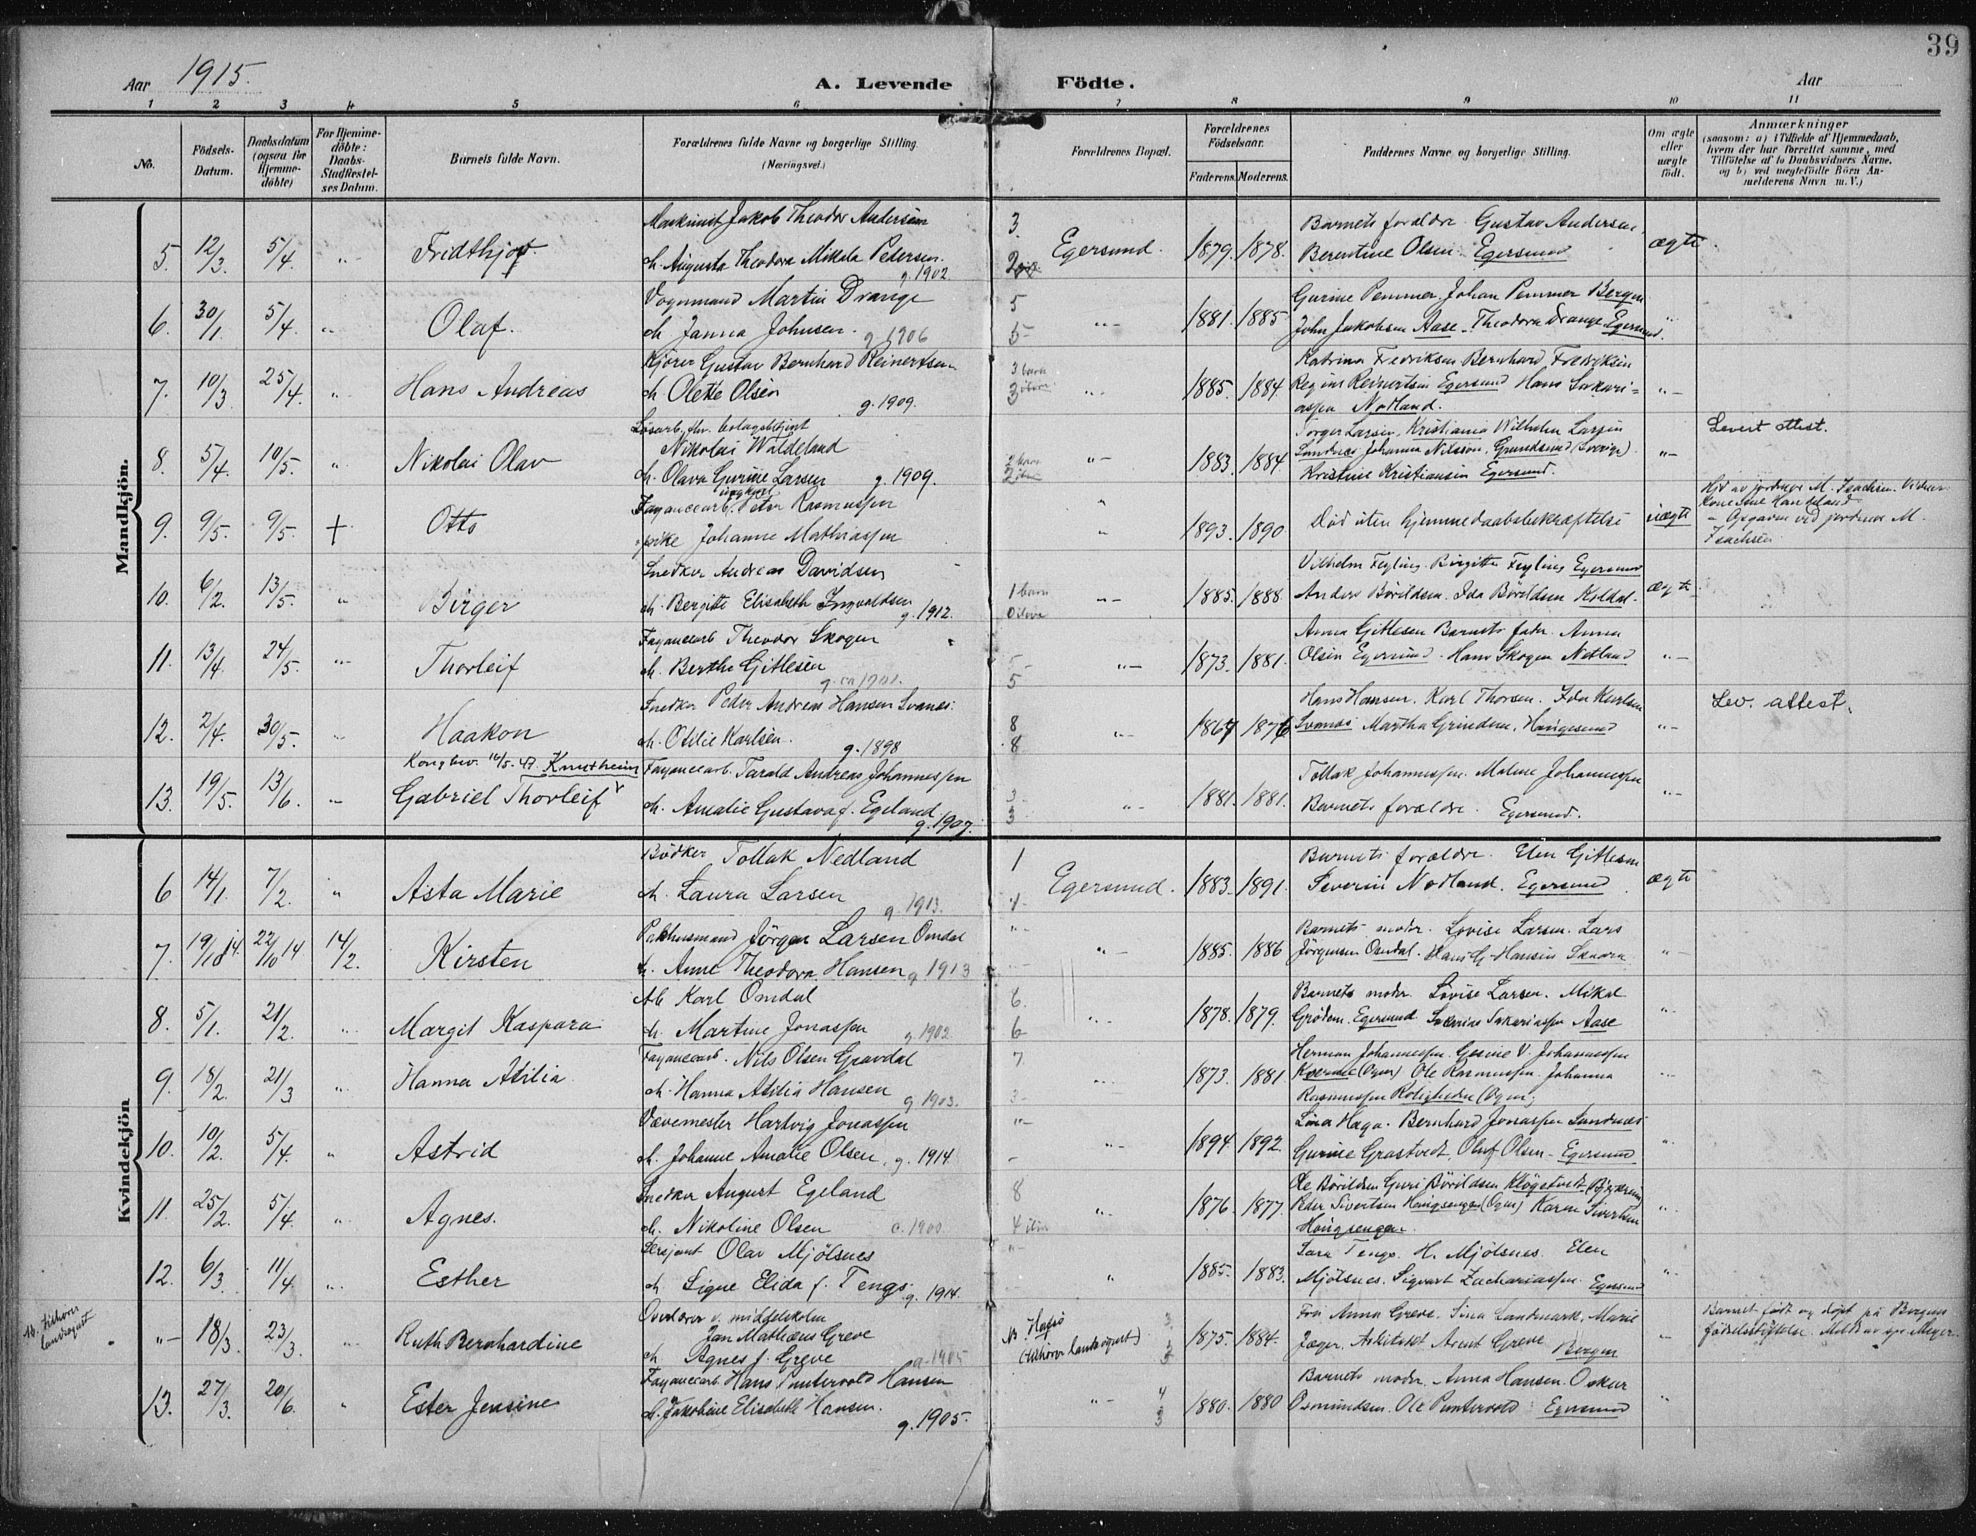 39
Aar 1915.
A. Levende Födte.
Aar
1 2 3 4 5 6 7 8 9 10 11
No.
Födsels-Datum.
Daabsdatum (ogsaa for Hjemme-döbte)
For Hjemme-döbte: Daabs-Stadfæstel-ses Datum.
Barnets fulde Navn.
Forældrenes fulde Navne og borgerlige Stilling.
(Næringsvei.)
Forældrenes Bopæl.
Forældrenes Födselsaar.
Faderens. Moderens.
Faddernes Navne og borgerlige Stilling.
Om ægte eller uægte födt.
Anmærkninger
(saasom: a) i Tilfælde af Hjemmedaab,
hvem der har forrettet samme, med
Tilföielse af to Daabsvidners Navne,
og b) ved uegtefödte Börn An-
melderens Navn m. V.)
Mandkjön.
5. 12/3 5/4 Fridthjof
Maskinist Jakob Theodor Andersen
Augusta Theodora Mikala Pedersen. g. 1902
3. Egersund. 1879. 1878.
Barnets forældre. Gustav Andersen,
Berentine Olsen. Egersund
ægte
6. 30/1 5/4 Olaf.
Vognmand Martin Drange
Janna Johnsen. g. 1906
5 5 1881. 1885.
Gurine Pemmer. Johan Pemmer Bergen
John Jakobsen Aase. Theodora Drange Egersund.
7. 10/3 25/4 Hans Andreas
Kjörer Gustav Bernhard Reinertsen
Olette Olsen g. 1909.
3 barn 3 ilive 1885. 1884.
Katrina Fredriksen Bernhard Fredriksen
Regine Reinertsen Egersund Hans Sakari-
assen Nodland.
8. 5/4 10/5 Nikolai Olav
Nikolai Waldeland
Olava Gurine Larsen g. 1909.
2 barn 2 ilive 1883. 1884
Torger Larsen, Kristiania Wilhelm Larsen
Sandnes Johanna Nilsson, Grundsund (Sverige)
Kristine Kristiansen Egersund.
Levert attest.
9. 9/5 9/5 + Otto
Fayancearb. ungkar Peter Rasmussen
pike Johanne Mathiassen
1893. 1890
Död uten hjemmedaabsbekræftelse
uægte
Hjd av jordmor M. Isachsen. Vidner
- Opgavn ved jordmor M.
Isachsen
10. 6/2 13/5 Birger
Snedker Andreas Davidsen
Bergitte Elisabeth Ingvaldsen g. 1912.
1 barn 0 ilive 1885. 1888.
Vilhelm Feyling. Birgitte Feyling Egersund
Anders Börildsen. Ida Börildsen Koldal.
ægte
11. 13/4 24/5 Thorleif
Fayancearb Theodor Skogen
Berthe Gitlesen g. ca 1901.
5 5 1873. 1881.
Anna Gitlesen Barnets fader. Anna
Olsen Egersund. Hans Skogen Netland
12. 2/4 30/5 Haakon
Snedker Peder Andreas Hansen Svanes.
Otilie Karlsen. g. 1898
8 8 1867 1876
Hans Hansen. Karl Thorsen. Ida Karlsen
Svanes. Martha Grindem, Haugesund
Lev. attest.
13. 19/5. 13/6. Gabriel Thorleif
Knutheim
Fayancearb. Tarald Andreas Johannessen
Amalie Gustava f. Egeland g. 1907.
3 3 1881. 1881.
Tollak Johannessen. Malene Johannessen
Barnets forældre. Egersund.
Kvindekjön
6 14/1. 7/2. Asta Marie
Bödker Tollak Nedland
Laura Larsen g. 1913.
1 Egersund. 1883. 1891.
Barnets forældre. Elen Gitlesen
Severin Nodland. Egersund.
ægte
7. 19/10 14. 22/10 14 14/2. Kirsten
Pakhusmand Jörgen Larsen Omdal
Anne Theodora Hansen g. 1913
1885. 1886
Barnets moder. Lovise Larsen. Lars
Jörgensen Omdal. Hans G. Hansen Skaara
8. 5/1. 21/2. Margit Kaspara
Arb Karl Omdal
Martine Jonassen g. 1902
6. 6 1878. 1879.
Barnets moder. Lovise Larsen. Mikal
Grödem. Egersund. Sakarias Sakariassen Aase
9. 18/2. 21/3 Hanna Atilia
Fayancearb. Nils Olsen Gravdal
Hanna Atilia Hansen g. 1903.
7. 3- 1873. 1881.
Herman Johannessen. Gesine V. Johannessen
(Ogna) Ole Rasmussen. Johanna
Rasmussen Roligheden (Ogna)
10. 10/2. 5/4. Astrid
Vævemester Hartvig Jonassen
Johanne Amalie Olsen. g. 1914
1894. 1892.
Lina Haga. Bernhard Jonassen Sandnes
Gurine Grastvedt, Oluf Olsen - Egersund
11. 25/2. 5/4. Agnes.
Snedker August Egeland
Nikoline Olsen 1900
8 4 ilive 1876. 1877.
Ole Börildsen Guri Börildsen Klögetvedt (Bjerkreim)
Peder Sivertsen Haugsengen (Ogna) Karen Sivertsen
Haugsengen.
12. 6/3 11/4 Esther
Sersjant Olav Mjölsnes
Signe Elida f. Tengs. g. 1914.
1885. 1883.
Sara Tengs. H. Mjölsnes. Elen
Mjölsnes. Sigvart Zachariassen. Egersund
tilhører landsognet
18/3. 23/3. Ruth Bernhardine
Overlærer v. middelskolen
Jan Mathæus Greve
Agnes f. Greve g. 1905
(tilhører landsognet) 3 3 1875. 1884.
Frk Anna Greve. Sina Landmark, Marie
Jæger. Arkitekt Arent Greve Bergen
Barnet født og döpt på Bergens
fødselsstiftelse. Meldt av spr. Meyer.
13. 27/3. 20/6. Ester Jensine
Fayancearb. Hans Puntervold Hansen
Jakobine Elisabeth Hansen. g. 1905.
4 3 1880. 1880
Barnets moder. Anna Hansen. Oskar
Osmundsen. Ole Puntervold. Egersund